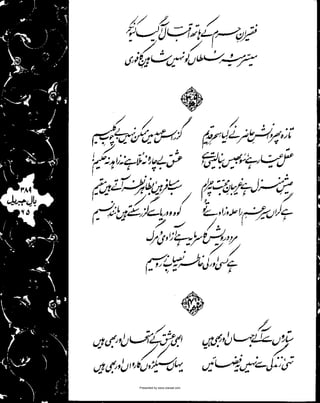 فقیرانِ حرم کے ہاتھ اقبالؔ آگیا کیونکر
میسر میر و سلطاں کو نہیں شاہینِ کافوری
تازہ پھر دانشِ حاضر نے کیا سحرِ قدیم گزر اس عہد میں ممکن نہیں بے چوبِ کلیم
عقل عیار ہے سو بھیس بنا لیتی ہے عشق بے چارہ نہ ملا ہے نہ زاہد نہ حکیم
عیشِ منزل ہے غریبانِ محبت پہ حرام سب مسافر ہیں بظاہر نظر آتے ہیں مقیم
ہے گراں سیر غمِ راحلہ و زاد سے تو کوہ و دریا سے گزر سکتے ہیں مانندِ نسیم
مردِ درویش کا سرمایہ ہے آزادی و مرگ
ہے کسی اور کی خاطر یہ نصابِ زر و سیم
ستاروں سے آگے جہاں اور بھی ہیں ابھی عشق کے امتحاں اور بھی ہیں
تہی زندگی سے نہیں یہ فضائیں یہاں سینکڑوں کارواں اور بھی ہیں
۳۸۹
بالِ جبریل